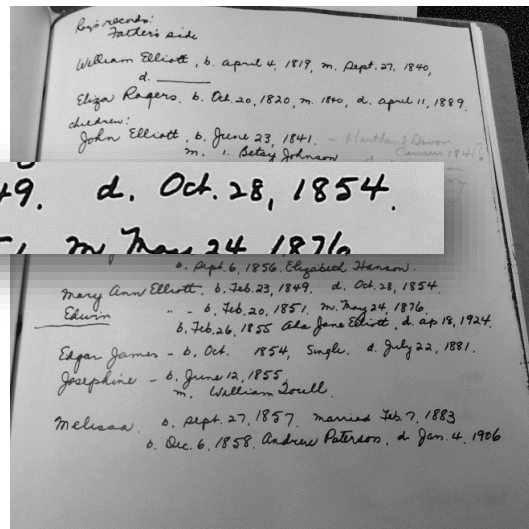 Roy's records:
Father's side
William Elliott, b. April 4, 1819, m. Sept. 27, 1840,
d. ______
Eliza Rogers. b. Oct. 20, 1820, m. 1840, d. April 11, 1889.
children:
John Elliott, b. June 23, 1841. - Hartland Devon
m. 1. Betsy Johnson d. Census 1841!
49. d. Oct. 28, 1854.
51, m May 24 1876
b. Sept. 6, 1856. Elizabeth Hanson.
Mary Ann Elliott. b. Feb. 23, 1849. d. Oct. 28, 1854.
Edwin " - b. Feb. 20, 1851. m. May 24, 1876.
b. Feb. 26, 1855 Ada Jane Elliott, d. ap 18, 1924.
Edgar James - b. Oct. 1854, Single. d. July 22, 1881.
Josephine - b. June 12, 1855.
m. William
Melissa. b. Sept. 27, 1857. married Feb. 7, 1883
b. Dec. 6, 1858. Andrew Paterson, d Jan. 4. 1906